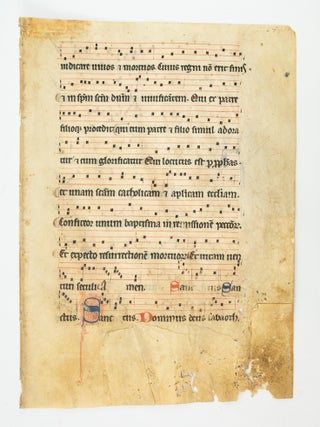 iudicare uiuos & mortuos Cuius regni nō erit finis.
& in spm scm dnm & uiuificātem. Qui ex patre
filioq; procedit qui cum patre & filio simul adora
tur & cum glorificatur Qui locutus est per pphas.
et unam scam catholicam & aplicam ecclam.
Confiteor unum baptisma in remissionē pecōr.
Et expecto resurrectionē mortuor. Et uitam uen
turi seculi. A men. Sanc tus San
ctus. Sanc tus. Dominus deus sabaoth.